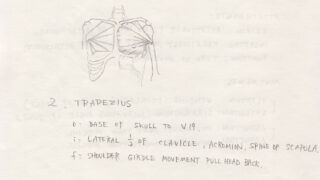 2. TRAPEZIUS
O: BASE OF SKULL TO V.19.
i: LATERAL 1/3 OF CLAVICLE, ACROMION, SPINE OF SCAPULA.
f: SHOULDER GIRDLE MOVEMENT. PULL HEAD BACK.